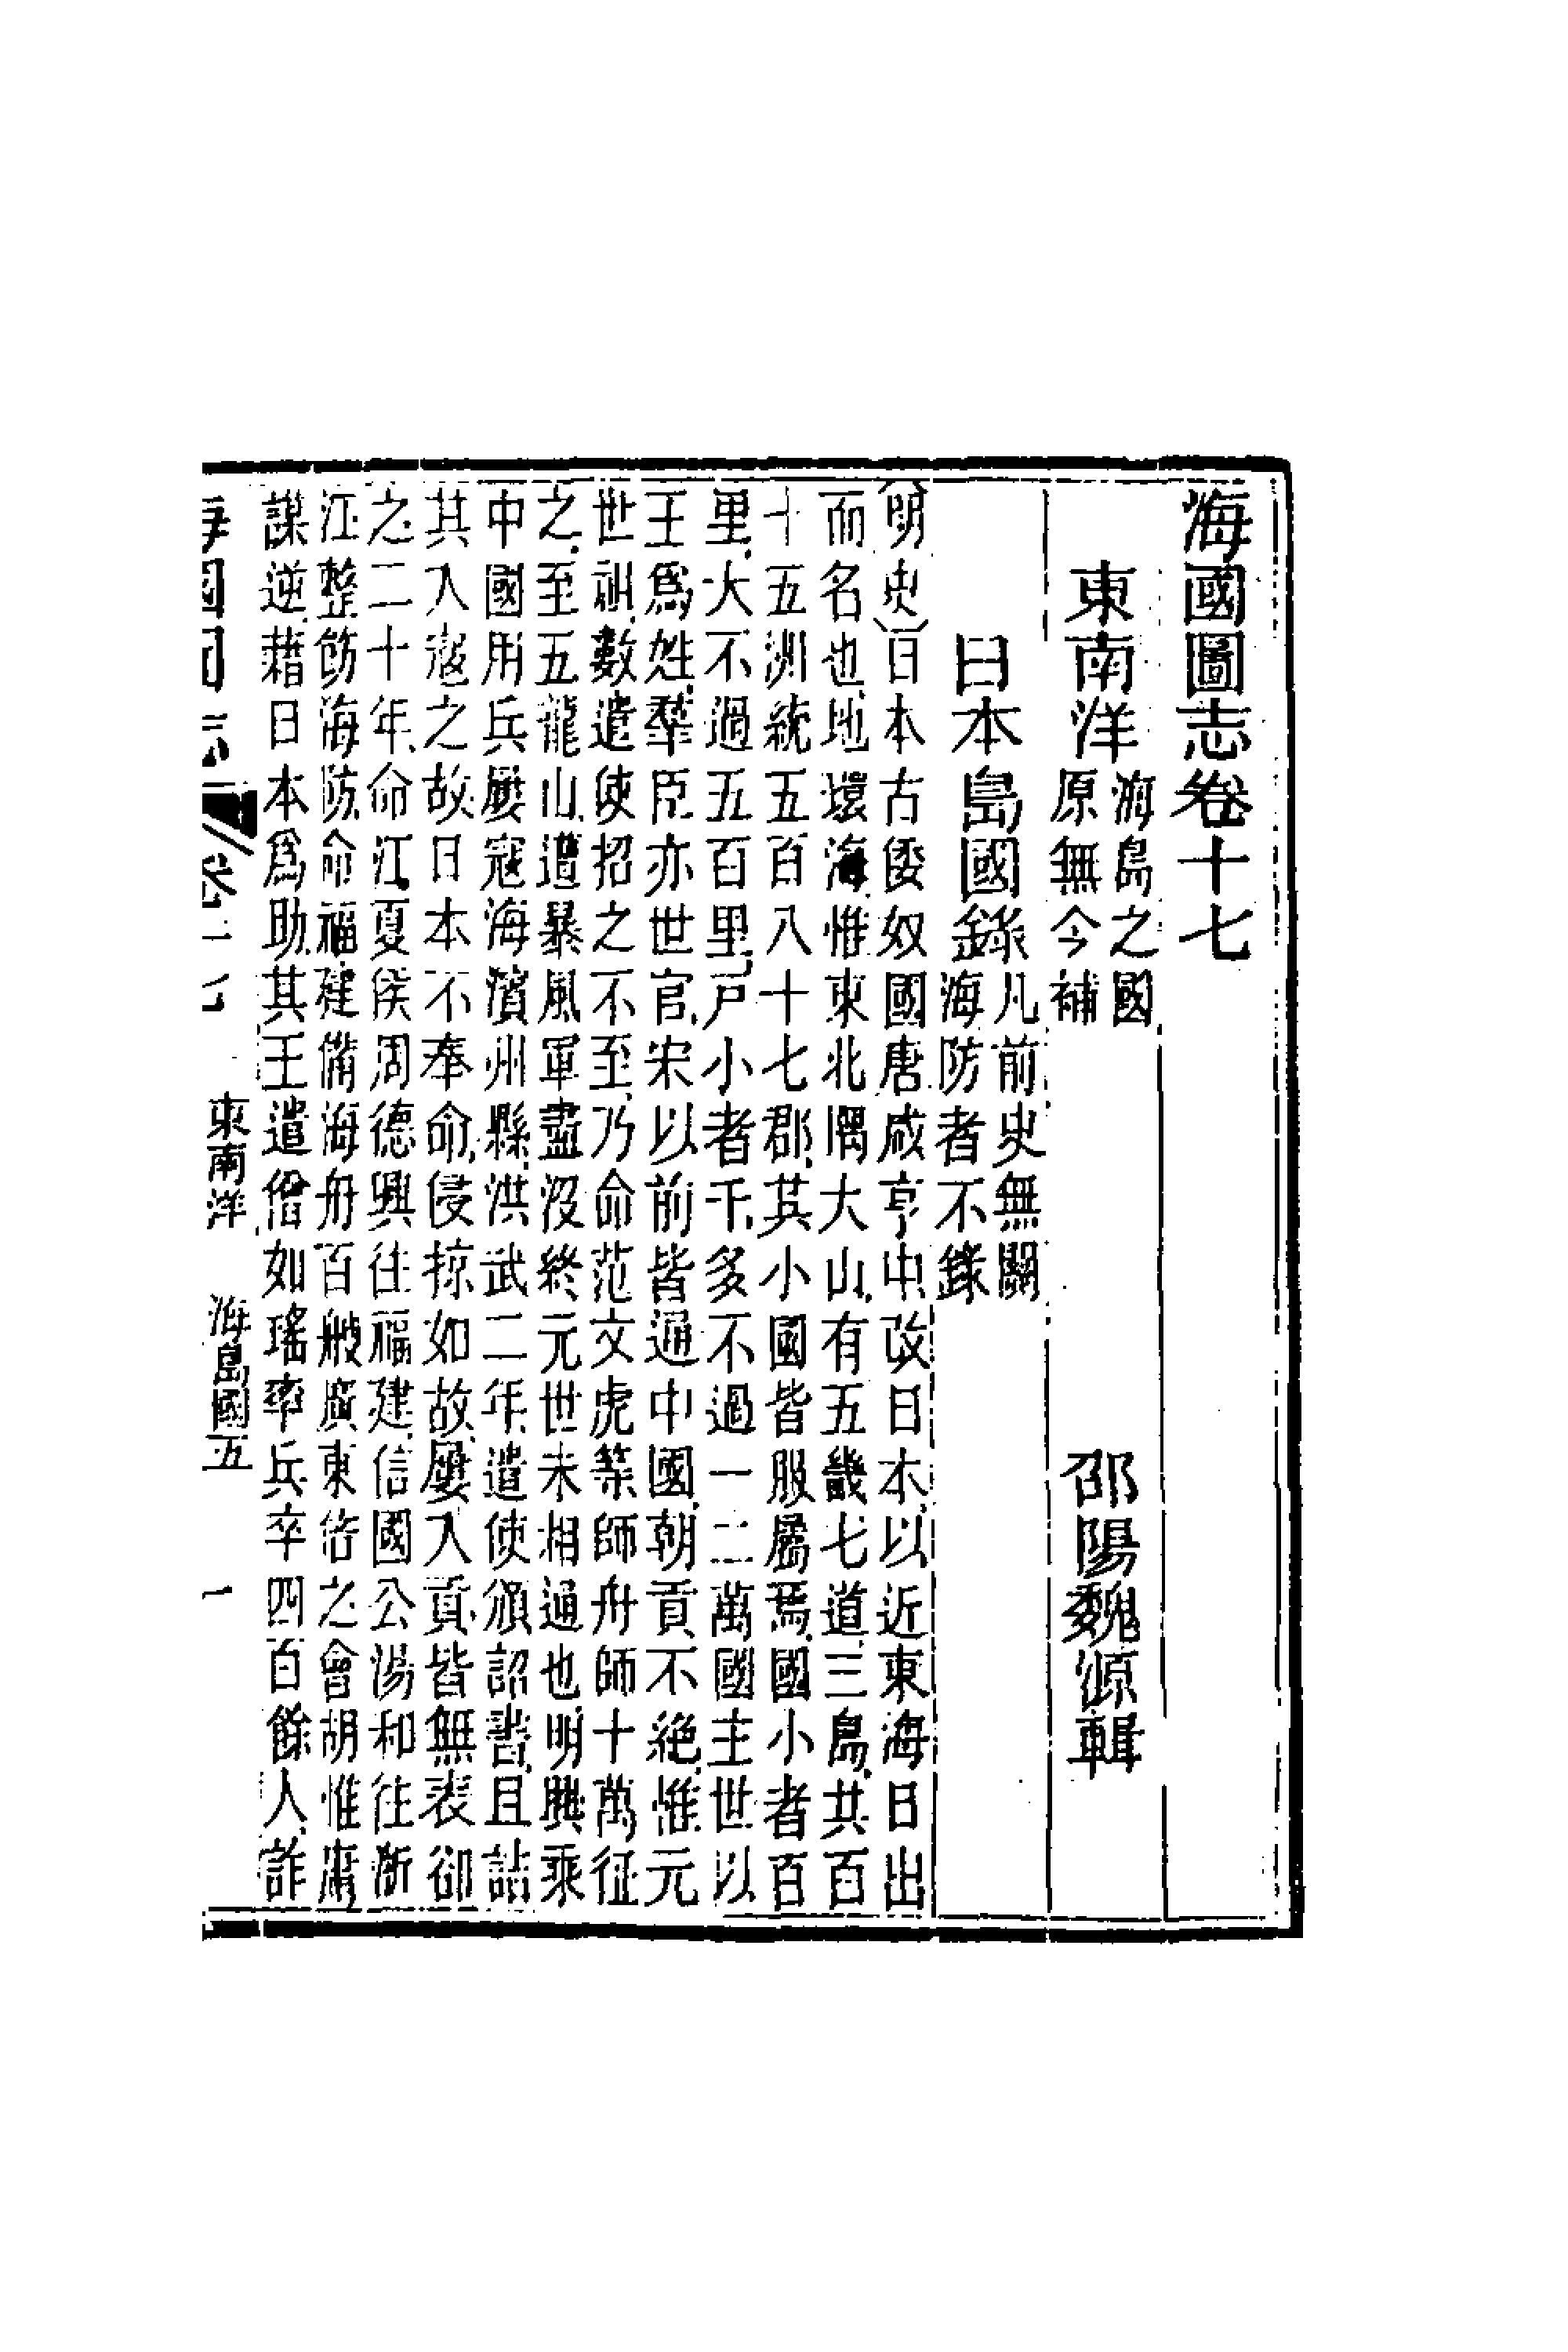 海國圖志卷十七
東南洋海島之國原無今補　邵陽魏源輯
日本島國錄凡前史無關海防者不錄
明史日本古倭奴國唐咸亨中改日本以近東海日出
而名也地環海惟東北隅大山有五畿七道三島共百
十五洲統五百八十七郡其小國皆服屬焉國小者百
里大不過五百里戸小者千多不過一二萬國主世以
王爲姓羣臣亦世官宋以前皆通中國朝貢不絶惟元
世祖數遣使招之不至乃命范文虎等師舟師十萬征
之至五龍山遭暴風軍盡沒終元世未相通也明興乘
中國用兵屢寇海濱州縣洪武二年遣使頒詔書且詰
其入寇之故日本不奉命侵掠如故屢入貢皆無表卻
之二十年命江夏侯周德興往福建信國公湯和往浙
江整飭海防命福建備海舟百艘廣東倍之會胡惟庸
謀逆藉日本爲助其王遣僧如瑤率兵卒四百餘人詐
海國圖志　卷十七　東南洋　海島國五　一